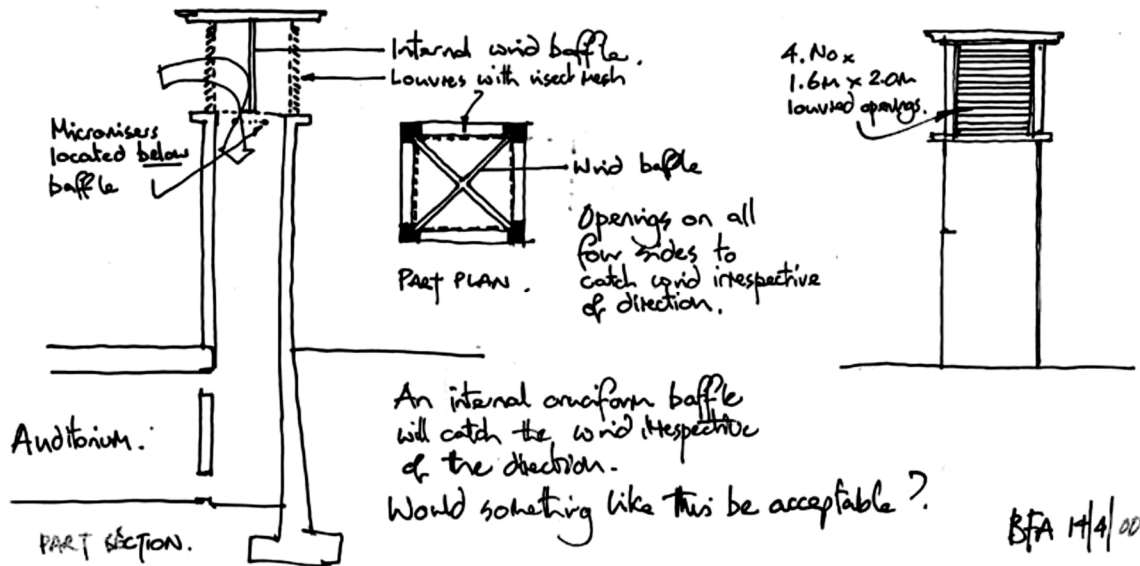 Internal wind baffle.
Louvres with insect mesh
Micronisers
located below
baffle
Wind baffle
Openings on all
four sides to
catch wind irrespective
of direction.
PART PLAN.
4. No x
1.6m x 2.0m
louvred openings.
Auditorium.
PART SECTION.
An internal cruciform baffle
will catch the wind irrespective
of the direction.
Would something like this be acceptable?
BFA 14/4/00